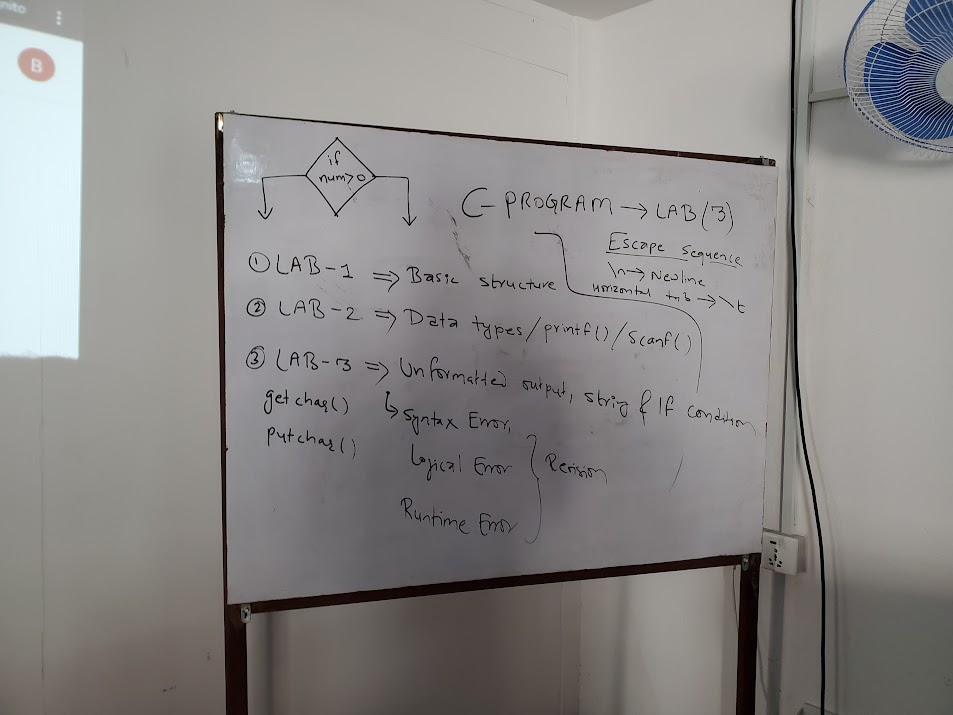 nito
B
if
num>0
C-PROGRAM → LAB(3)
Escape sequence
\n → Newline
Horizontal tab → \t
① LAB-1 ⇒ Basic structure
② LAB-2 ⇒ Data types/printf()/scanf()
③ LAB-3 ⇒ Unformatted output, string & If condition
getchar()
putchar()
↳ Syntax Error,
Logical Error
Runtime Error
} Revision